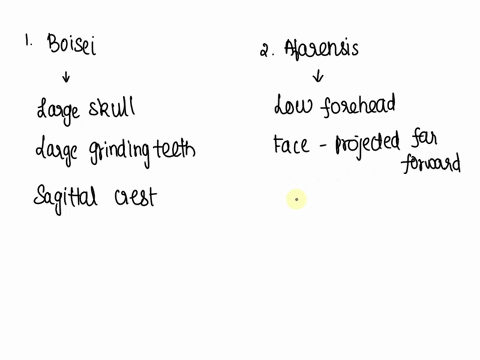 1. Boisei
↓
Large skull
Large grinding teeth
Sagittal crest
2. Afarensis
↓
Low forehead
Face - projected far
forward